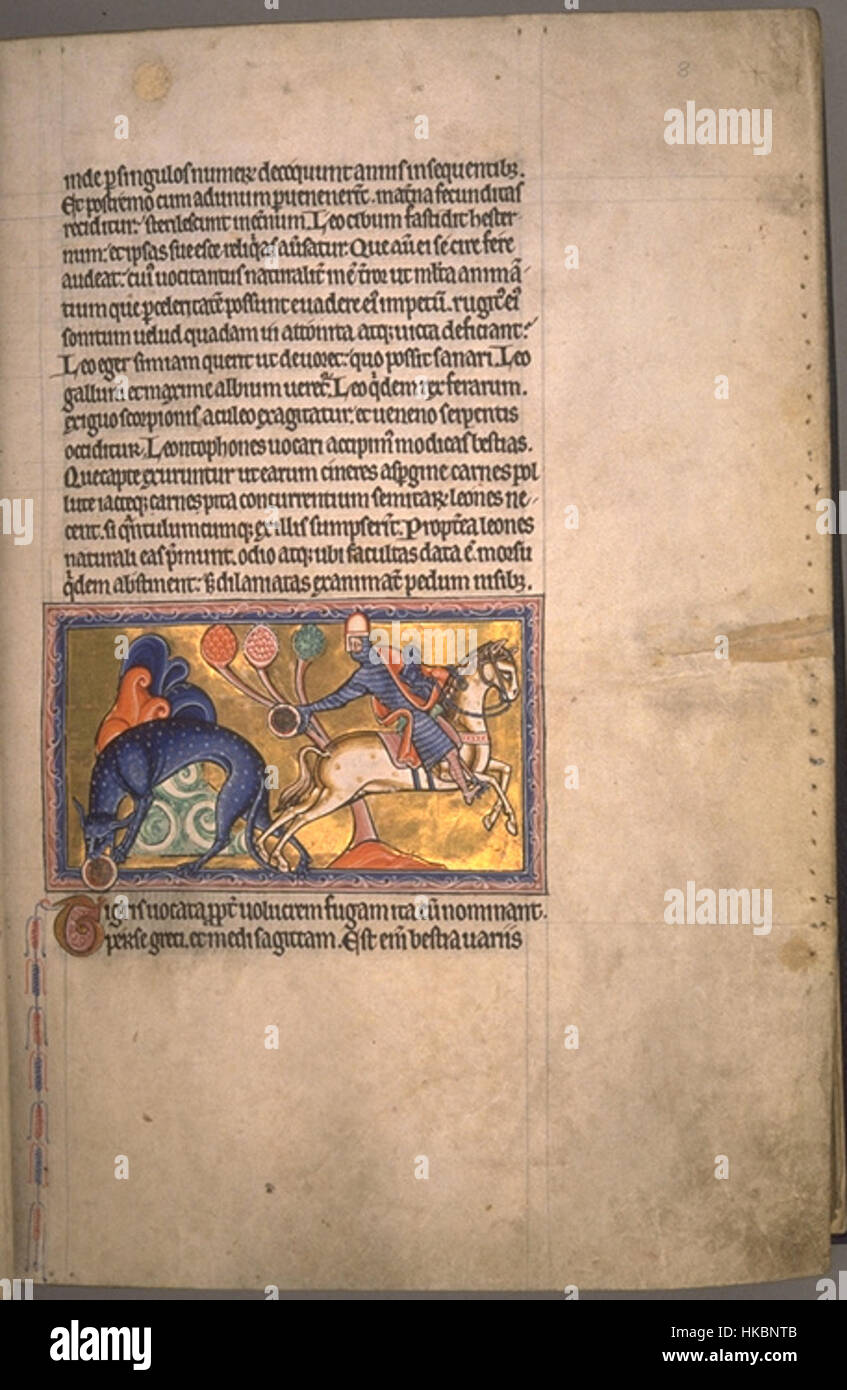 8
inde p singulos numerꝝ decoquunt annis insequentibꝫ.
Et postremo cum ad unum puenenerīt. mat̄na fecunditas
reciditur: sterilescunt inet̄num. Leo cibum fastidit hester-
num: et ipsas sue esce reliq̄as au̅satur. Que au̅ ei se cire fere
audeat: cui uocitantus naturalit̄ inē t̄ror ut mlta animā-
tium que p celeritatē possunt euadere ei impetū. rugit ei
sonitum uelud quadam ui attonita atqꝫ uicta deficiant.
Leo eger simiam querit ut deuoret: quo possit sanari. Leo
gallum et maxime album ueret̄. Leo q̇dem rex ferarum.
exiguo scorpionis aculeo exagitatur. et ueneno serpentis
occiditur. Leontophones uocari accipimꝰ modicas bestias.
Que capte exuruntur ut earum cineres aspgine carnes pol
lute iacteqꝫ carnes p ita concurrentium semitarꝝ leones ne-
cent. si q̄ntulumcumqꝫ ex illis sumpserīt. Propt̄ea leones
naturali eas p̄munt. odio atqꝫ ubi facultas data ē morsu
q̇dem abstinent: dilaniatas exanimāt pedum nisibꝫ.
Tigris uocata ppt̄ uolucrem fugam ita n̄ nominant
perse greci. et medi sagittam. Est eni̅ bestia uariis
a alamy stock photo
alamy
Image ID: HKBNTB
www.alamy.com